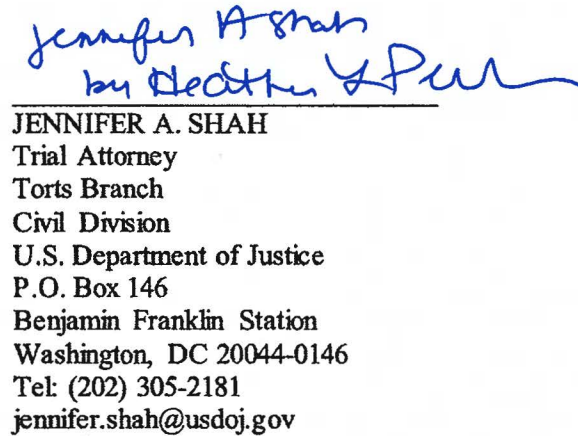 Jennifer A Shah
by Heather L
JENNIFER A. SHAH
Trial Attorney
Torts Branch
Civil Division
U.S. Department of Justice
P.O. Box 146
Benjamin Franklin Station
Washington, DC 20044-0146
Tel: (202) 305-2181
jennifer.shah@usdoj.gov